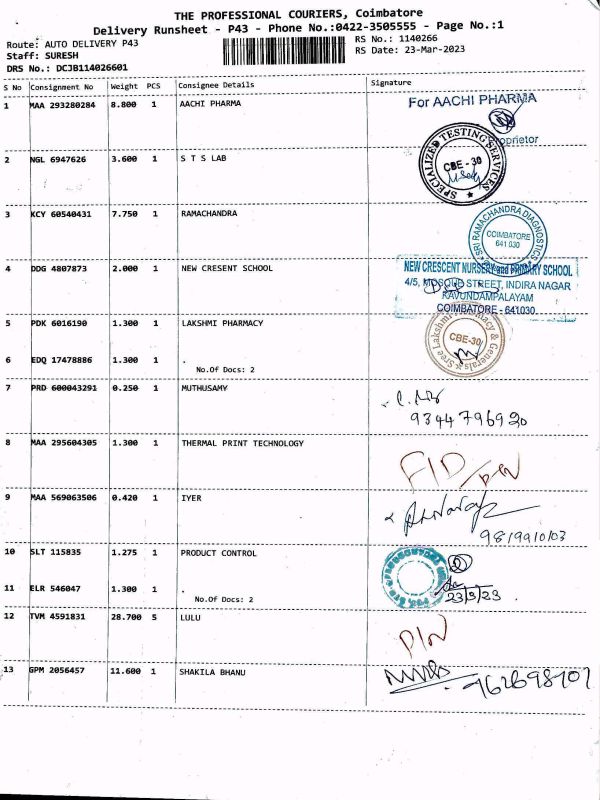 THE PROFESSIONAL COURIERS, Coimbatore
Delivery Runsheet - P43 - Phone No.:0422-3505555 - Page No.:1
Route: AUTO DELIVERY P43
RS No.: 1140266
Staff: SURESH
RS Date: 23-Mar-2023
DRS No.: DCJB114026601
S No Consignment No Weight PCS Consignee Details Signature
1 MAA 293280284 8.800 1 AACHI PHARMA
For AACHI PHARMA
Proprietor
2 NGL 6947626 3.600 1 S T S LAB
SPECIALIZED TESTING SERVICES
CBE - 30
3 KCY 60540431 7.750 1 RAMACHANDRA
SRI RAMACHANDRA DIAGNOSTICS
COIMBATORE
641 030
4 DDG 4807873 2.000 1 NEW CRESENT SCHOOL
NEW CRESCENT NURSERY and PRIMARY SCHOOL
4/5, MOSQUE STREET, INDIRA NAGAR
KAVUNDAMPALAYAM
COIMBATORE - 641030.
5 PDK 6016190 1.300 1 LAKSHMI PHARMACY
Sree Lakshmi Pharmacy & Generals
CBE-30
6 EDQ 17478886 1.300 1 .
No.Of Docs: 2
7 PRD 600043291 0.250 1 MUTHUSAMY
9344796920
8 MAA 295604305 1.300 1 THERMAL PRINT TECHNOLOGY
9 MAA 569063506 0.420 1 IYER
9819910103
10 SLT 115835 1.275 1 PRODUCT CONTROL
23/3/23
11 ELR 546047 1.300 1 .
No.Of Docs: 2
12 TVM 4591831 28.700 5 LULU
13 GPM 2056457 11.600 1 SHAKILA BHANU